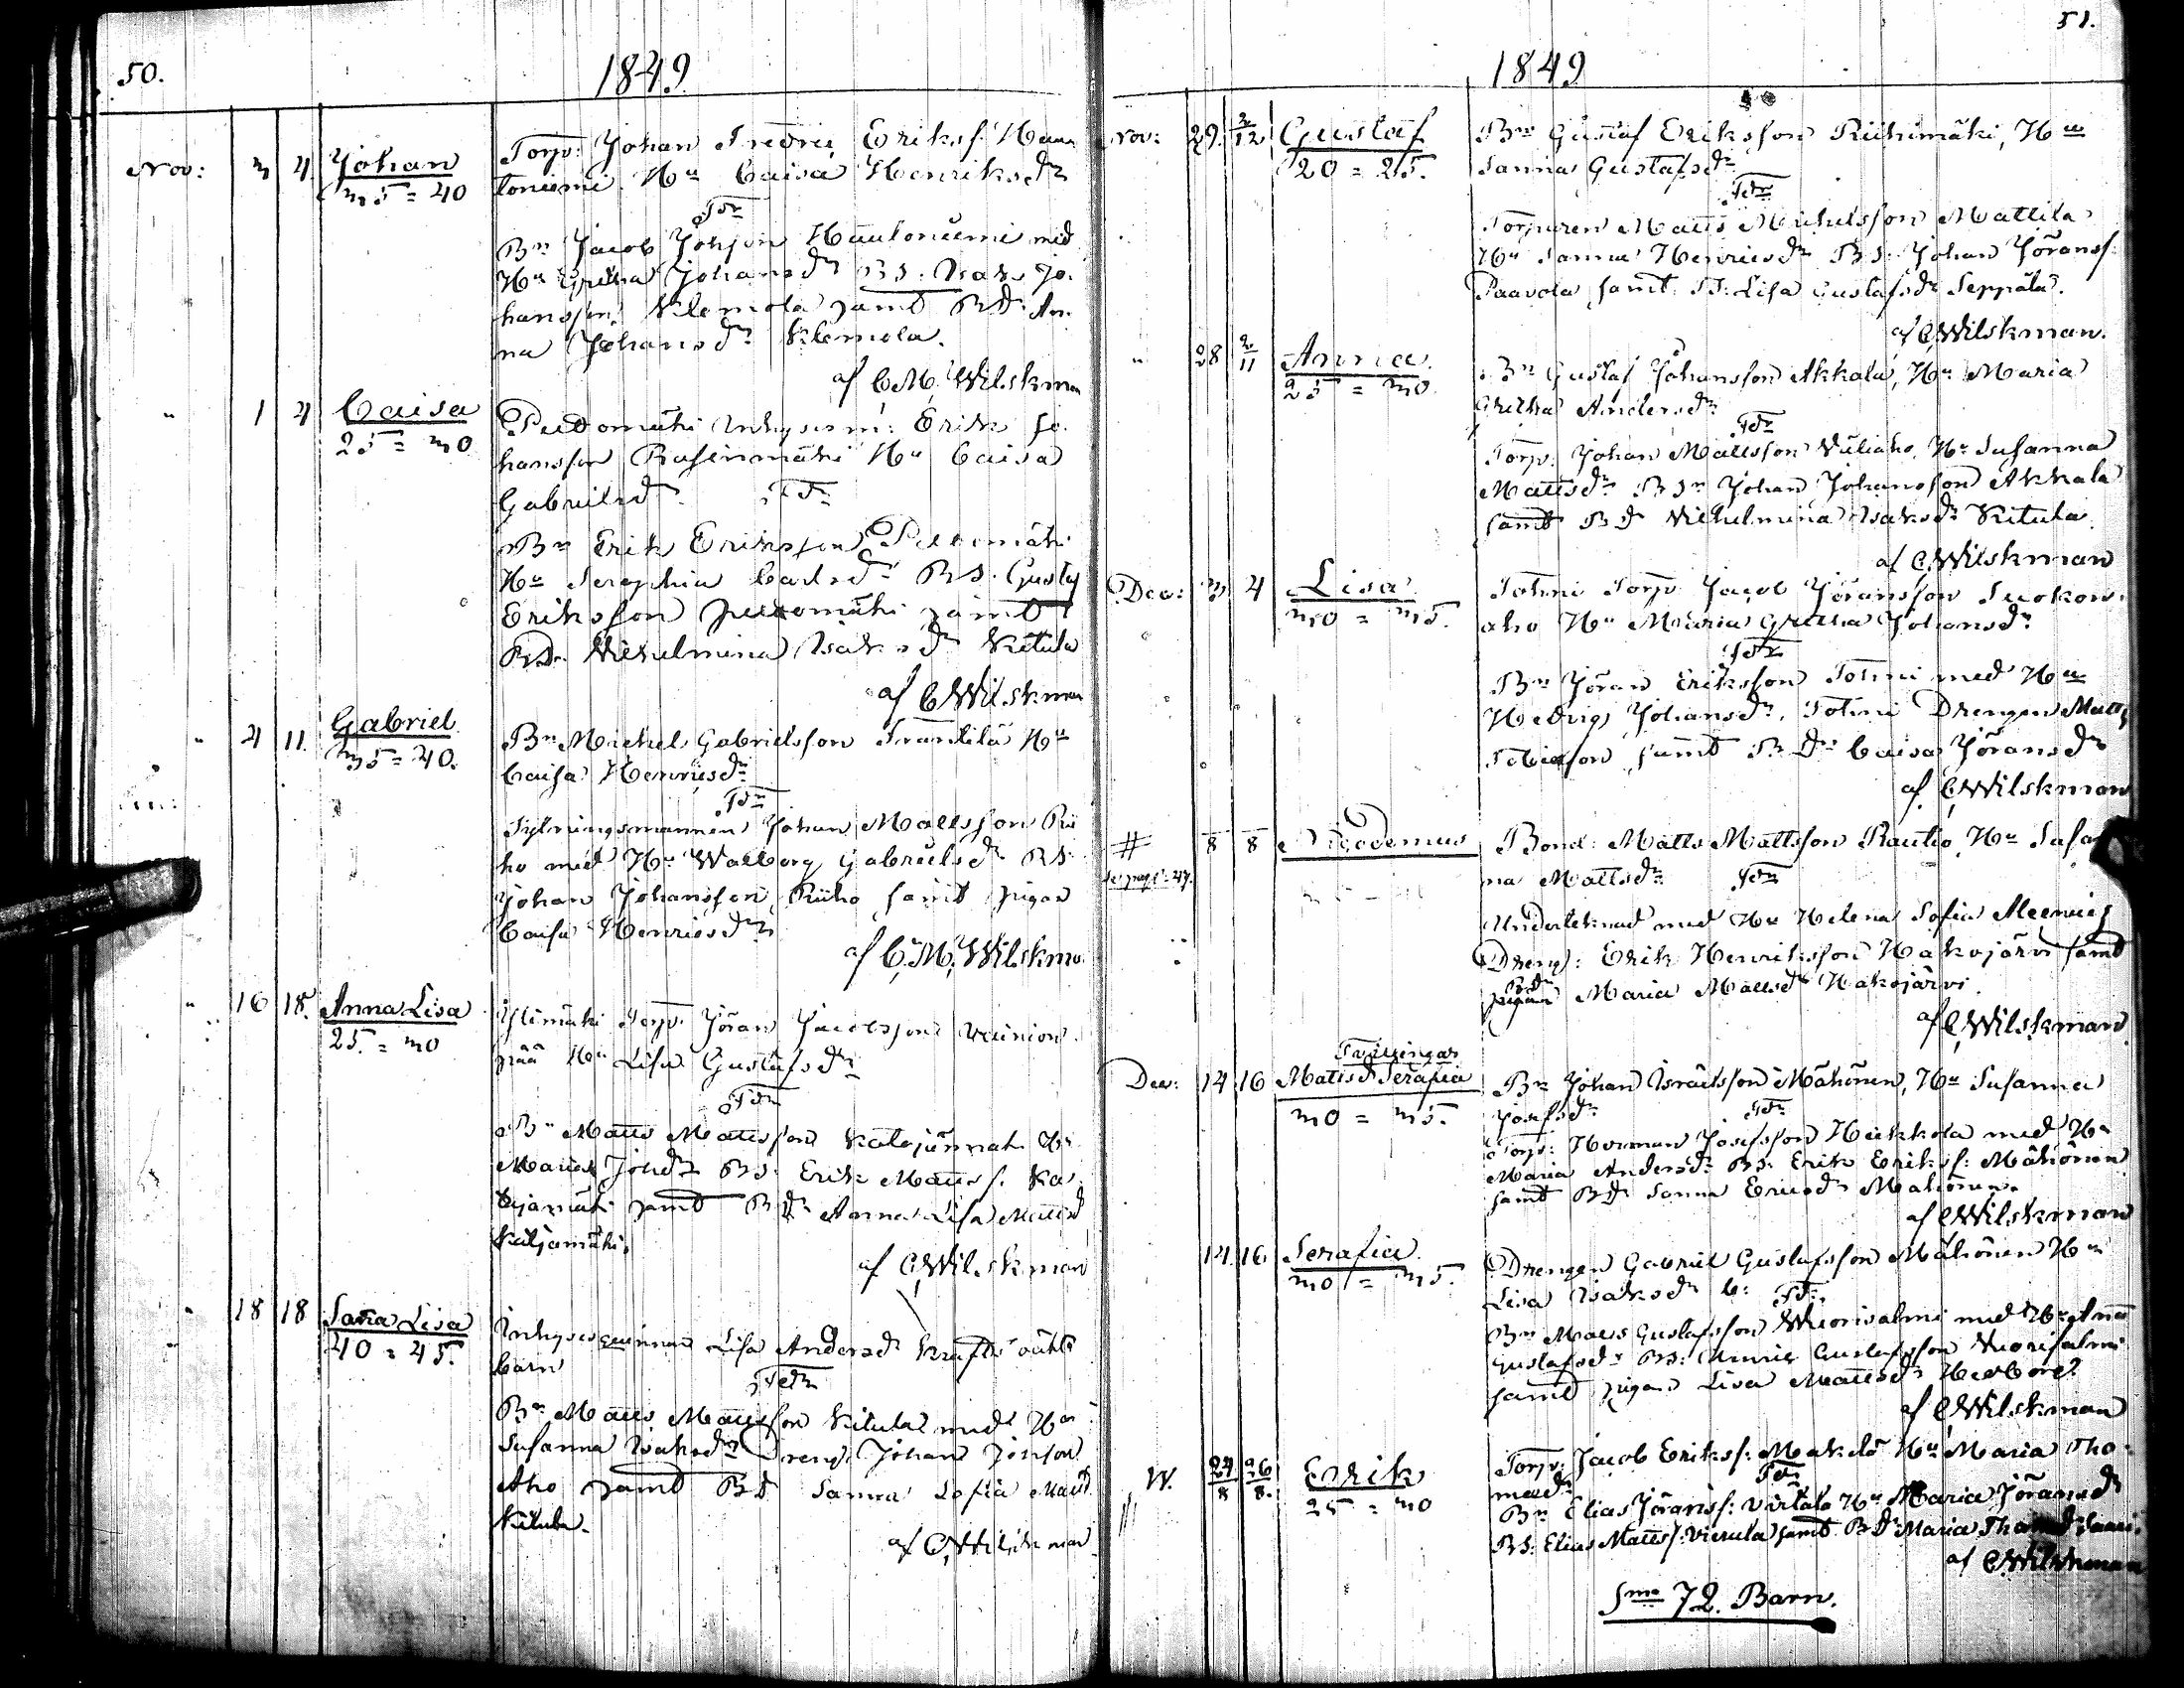 50.
1849.
Nov: 3 4. Johan
35 = 40
Torp: Johan Fredric Eriksf. Hau
toniemi Hu Caisa Henriksdr
Tdr
Bn Jacob Johsson Hautoniemi med
Hu Gretha Johansdr BS: Isak Jo-
hansson Klemola samt BD: An-
na Johansdr Klemola.
af C.M. Wilskman
" 1 4 Caisa
25 = 30
Inhysesm: Erik Jo-
hansson Hu Caisa
Gabrielsdr Tdr
Bn Erik Eriksson
Hu Seraphia Carlsdr BS: Gustaf
Eriksson samt
BD: Vilhelmina Isaksdr Kitula
af C Wilskman
" 4 11. Gabriel
35 = 40.
Bn Michel Gabrielsson Frantilä Hu
Caisa Henricsdr
Tdr
Johan Mattsson Rii
ho med Hu Walborg Gabrielsdr BS
Johan Johansson Riiho samt pigan
Caisa Henricsdr
af C.M. Wilskman
" 16 18. Anna Lisa
25. = 30
Ylimäki Torp: Jöran Jacobsson
pää Hu Lisa Gustafsdr
Tdr
Bn Matts Mattsson Hu
Maria BS: Erik Mattsf. Ka
samt BD: Anna Lisa Mattsd
Katjamäki.
af C. Wilskman
" 18 18 Sanna Lisa
40 = 45.
Inhysesqvinnan Lisa Andersdr oäkta
barn
Tdr
Bn Matts Mattsson Kitula med Hu
Susanna Isaksdr Dreng: Johan Jönsson
Aho samt BD Sanna Sofia Mattsd
Kitula.
af C. Wilskman
51.
1849
Nov: 29. 2/12 Gustaf
20 = 25.
Bn Gustaf Eriksson Riihimäki, Hu
Sanna Gustafsdr
Tdr
Torparen Matts Michelsson Mattila
Hu Sanna Henricsdr BS: Johan Jöransf:
Paavola samt Lisa Gustafsdr Seppälä.
af C Wilskman.
" 28 2/11 Anna.
25 = 30
Bn Gustaf Johansson Akkala, Hu Maria
Gretha Andersdr
Tdr
Torp: Johan Mattsson Hu Susanna
Mattsdr BSn Johan Johansson Akkala
samt BD Vilhelmina Isaksdr Kitula.
af C Wilskman
Dec: 3 4 Lisa
30 = 35.
Tohni Torp: Jacob Jöransson Suokon-
aho Hu Maria Gretha Johansdr
Tdr
Bn Jöran Eriksson Tohni med Hu
Hedvig Johansdr, Tohni Drengen Matts
Tobiasson samt BDr Caisa Jöransdr
af C Wilskman
# 8 8 Nicodemus
Se pag: 47.
Bond: Matts Mattsson Rautio, Hu Susa
na Mattsdr Tdr
Undertecknad med Hu Helena Sofia
Dreng: Erik Henriksson Hakojärvi samt
BDr
pigan Maria Mattsdr Hakojärvi.
af C Wilskman
Tvillingar
Dec: 14 16 Matts & Serafia
30 = 35.
Bn Johan Israelsson Mähönen, Hu Susanna
Josefsdr Tdr
Torp: Herman Josefsson Heikkola med Hu
Maria Andersdr BS: Erik Eriksf: Mähönen
samt BD Sanna Ericsdr Mähönen.
af C Wilskman
14. 16 Serafia.
30 = 35.
Drengen Gabriel Gustafsson Mähönen Hu
Lisa Isaksdr C: Tdr
Bn Matts Gustafsson Wuorisalmi med Hu Anna
Gustafsdr BS: Henric Gustafsson Vuorisalmi
samt pigan Lisa Mattsdr
af C Wilskman
W. 24/8 26/8. Erik
25 = 30
Torp: Jacob Eriksf: Mäkelä Hu Maria Tho-
masdr Tdr
Bn Elias Jöransf: Virtala Hu Maria Jöransdr
BS: Elias Mattsf: Vierula samt BDr Maria
af C Wilskman
Sma 72. Barn.